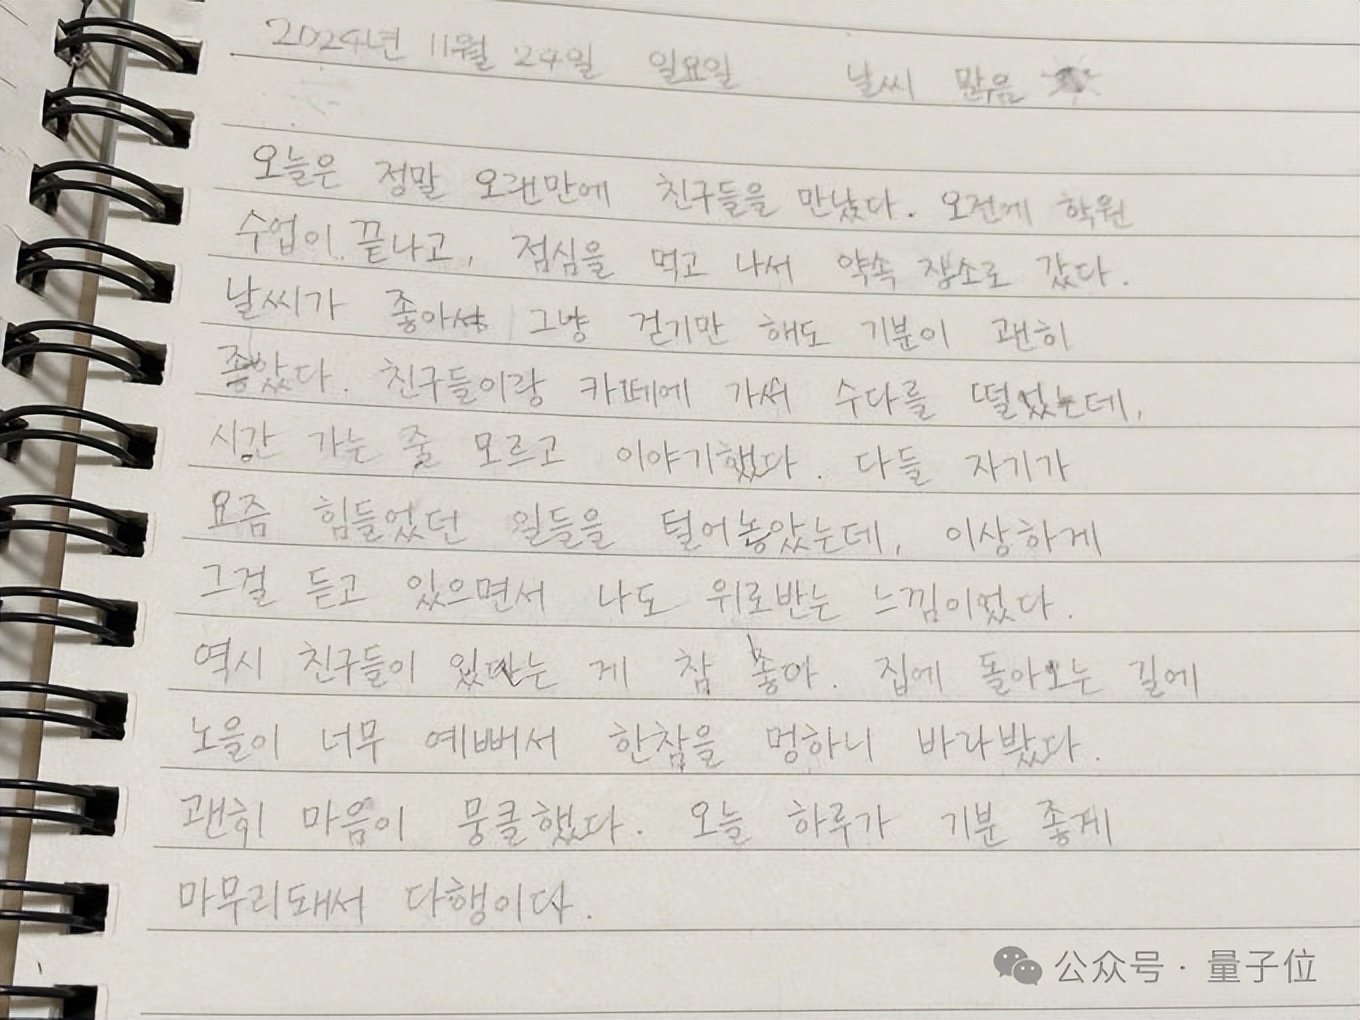 2024년 11월 24일 일요일 날씨 맑음
오늘은 정말 오랜만에 친구들을 만났다. 오전에 학원
수업이 끝나고, 점심을 먹고 나서 약속 장소로 갔다.
날씨가 좋아서 그냥 걷기만 해도 기분이 괜히
좋았다. 친구들이랑 카페에 가서 수다를 떨었는데,
시간 가는 줄 모르고 이야기했다. 다들 자기가
요즘 힘들었던 일들을 털어놓았는데, 이상하게
그걸 듣고 있으면서 나도 위로받는 느낌이었다.
역시 친구들이 있다는 게 참 좋아. 집에 돌아오는 길에
노을이 너무 예뻐서 한참을 멍하니 바라봤다.
괜히 마음이 뭉클했다. 오늘 하루가 기분 좋게
마무리돼서 다행이다.
公众号 · 量子位